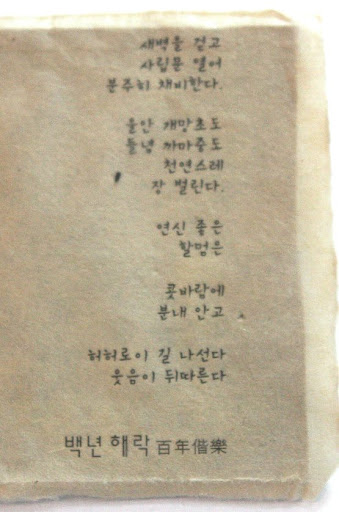 새벽을 걷고
사립문 열어
분주히 채비한다.
울안 개망초도
들녘 까마중도
천연스레
장 벌린다.
연신 좋은
할멈은
콧바람에
분내 안고
허허로이 길 나선다
웃음이 뒤따른다
백년해락 百年偕樂